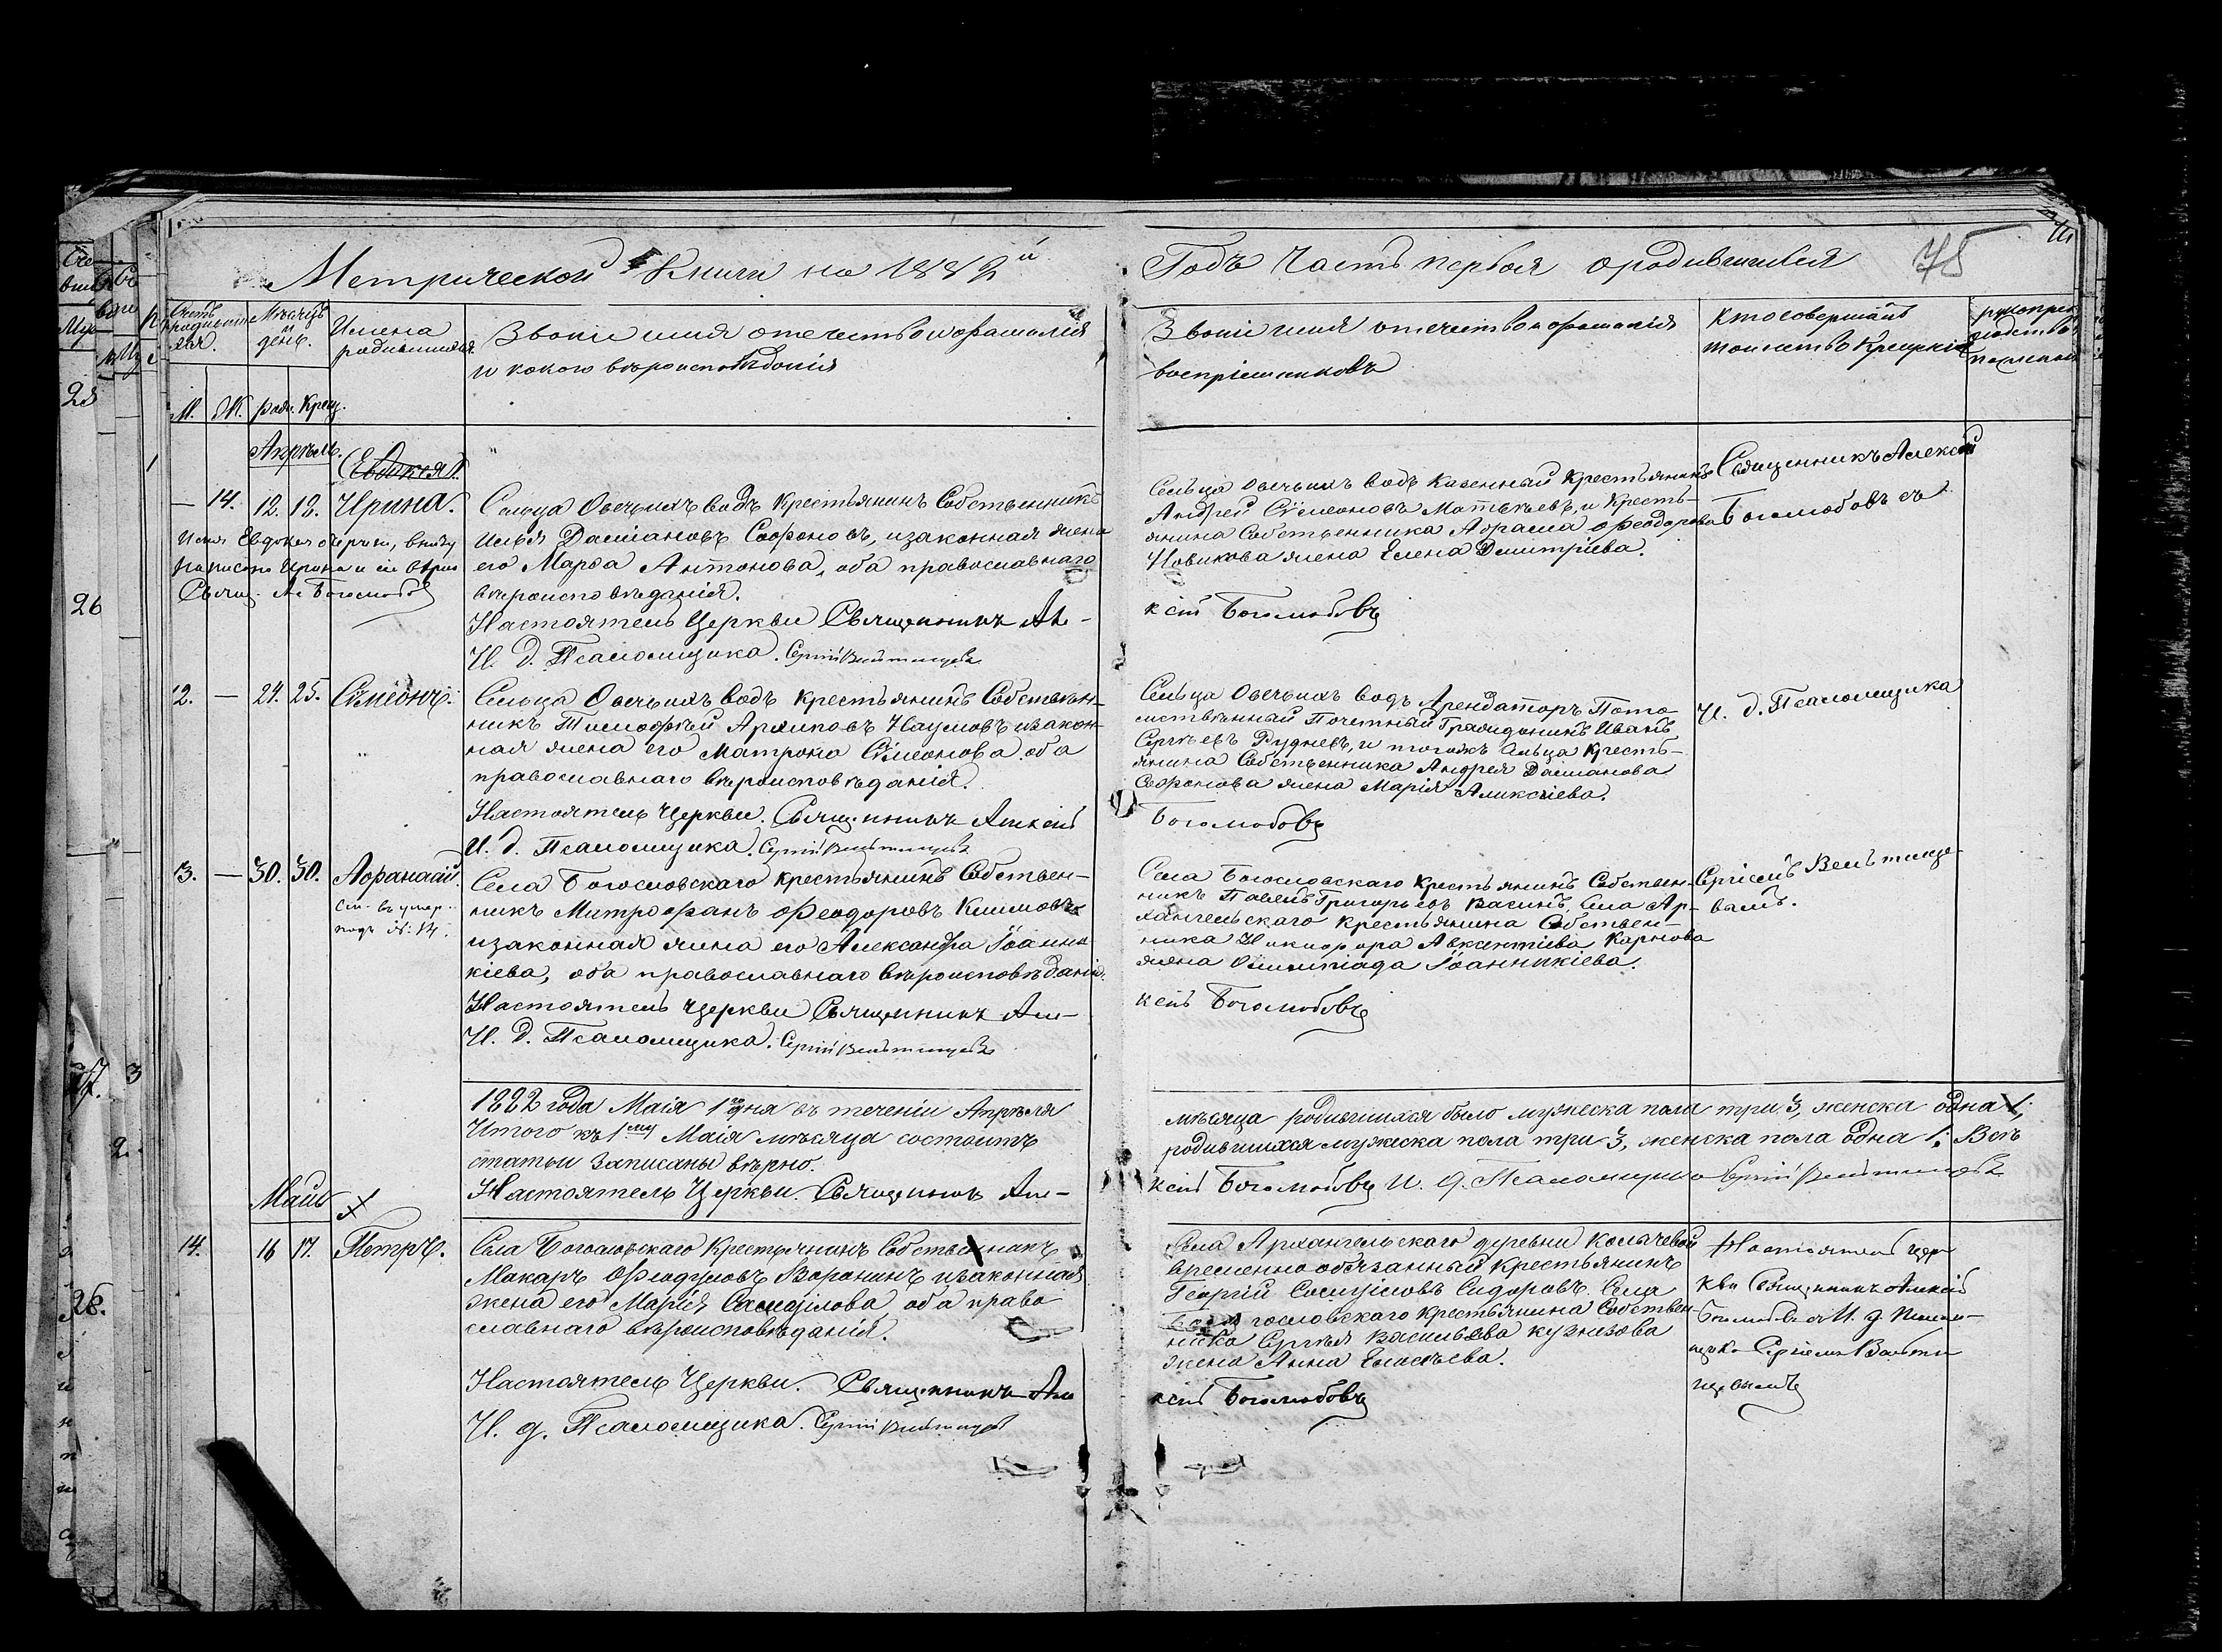 Метрической Книги на 1882й
Годъ Часть первая о родившихся
75
Счетъ родившихся.
Мѣсяцъ и день.
Имена родившихся.
Званіе имя отечество и фамилія
и какого вѣроисповѣданія
Званіе имя отечество и фамилія
воспріемниковъ
Кто совершалъ
таинство крещенія
М. Ж. рожд. Крещ.
Апрѣль.
Евдокея
— 14. 12. 12. Ирина.
Имя Евдокея очеркн, внизу
написано Ирина и сіе вѣрно
Свящ. Ал. Боголюбовъ
Сельца Овечьихъ водъ Крестьянинъ Собственникъ
Илья Даміановъ Софоновъ, и законная жена
его Марѳа Антонова, оба православнаго
вѣроисповѣданія.
Настоятель Церкви Священникъ Але-
И. д. Псаломщика. Сергій
Сельца Овечьихъ водъ Казенный Крестьянинъ
Андрей Сѷмеоновъ Матвѣевъ, и Кресть-
янина Собственника Абрама Ѳеодорова
Новикова жена Елена Димитріева.
ксій Боголюбовъ
Священникъ Алексій
Боголюбовъ съ
12. — 24. 25. Сѷмеонъ.
Сельца Овечьихъ водъ Крестьянинъ Собствен-
никъ Тимофѣй Архиповъ Наумовъ и закон-
ная жена его Матрона Сѷмеонова оба
православнаго вѣроисповѣданія.
Настоятель Церкви. Священникъ Алексій
И. д. Псаломщика. Сергій
Сельца Овечьихъ водъ Арендаторъ Пото-
мственный Почетный Гражданинъ Иванъ
Сергѣевъ Рудневъ, и тогожъ сельца Кресть-
янина Собственника Андрея Даміанова
Софонова жена Марія Алексіева.
Боголюбовъ
И. д. Псаломщика
13. — 30. 30. Аѳанасій.
Села Богословскаго Крестьянинъ Собствен-
никъ Митрофанъ Ѳеодоровъ Климовъ
и законная жена его Александра Іоанни-
кіева, оба православнаго вѣроисповѣданія.
Настоятель Церкви Священникъ Але-
И. д. Псаломщика. Сергій
Села Богословскаго Крестьянинъ Собствен-
никъ Павелъ Григорьевъ Васинъ, села Ар-
хангельскаго Крестьянина Собствен-
ника Никифора Авксентіева Карпова
жена Олимпіада Іоанникіева.
ксій Боголюбовъ
Сергіемъ
1882 года Маія 1го дня въ теченіи Апрѣля
Итого къ 1му Маія мѣсяца состоитъ
статьи записаны вѣрно.
Настоятель Церкви. Священникъ Але-
мѣсяца родившихся было мужеска пола три 3, женска одна 1;
родившихся мужеска пола три 3, женска пола одна 1; Всѣ
ксій Боголюбовъ И. д. Псаломщика Сергій
Май
14. 16 17. Петръ.
Села Богословскаго Крестьянинъ Собственникъ
Макаръ Ѳеодуловъ Воронинъ и законная
жена его Марія Самуилова, оба право
славнаго вѣроисповѣданія.
Настоятель Церкви. Священникъ Але
И. д. Псаломщика. Сергій
Села Архангельскаго деревни Колычевой
временно обязанный Крестьянинъ
Георгій Сидоровъ. Села
Богословскаго Крестьянина Собствен-
ника Сергѣя Васильева Кузнецова
жена Анна Елисѣева.
ксій Боголюбовъ
Настоятель Цер
кви Священникъ Алексій
Боголюбовъ и И. д. Псало-
мщика Сергіемъ